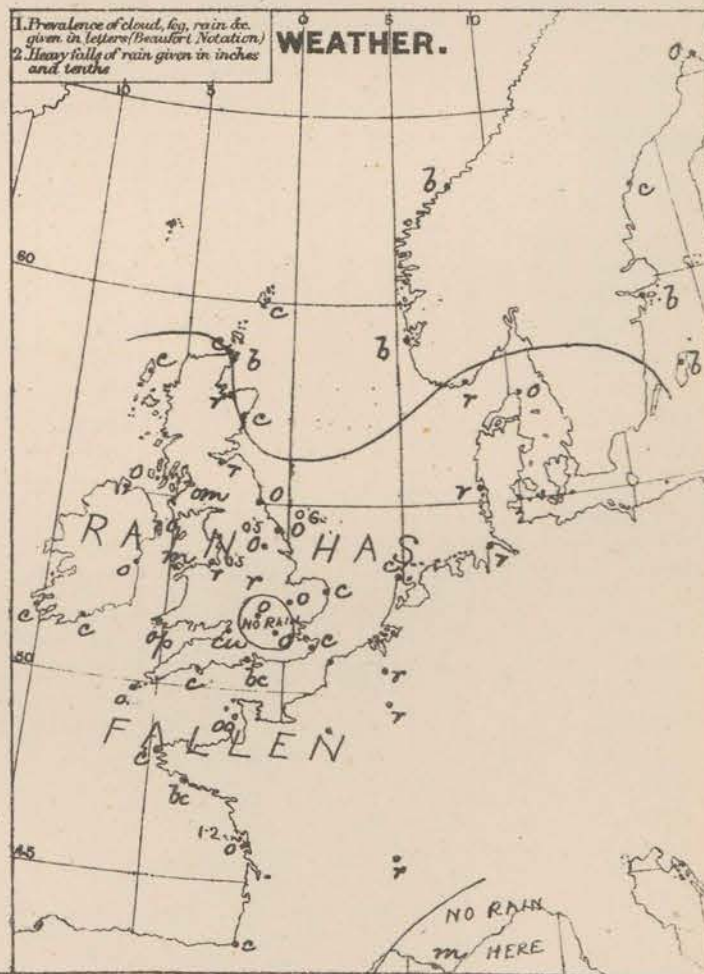 1. Prevalence of cloud, fog, rain &c.
given in letters (Beaufort Notation)
2. Heavy falls of rain given in inches
and tenths
WEATHER.
10 5 0 5 10
o
b
c
60
c
b
b
b
c
c
b
r
c
r
o
r
o
om
o
r
0.5
0.6.
o
o
RAIN HAS
p
m
o
r
0.5
r
r
c
c
c
c
o
o
c
NO RAIN
o
c
op
cw
50
o.
c
bc
r
r
oo
FALLEN
c
bc
1·2.
o
45
r
c
NO RAIN
m HERE